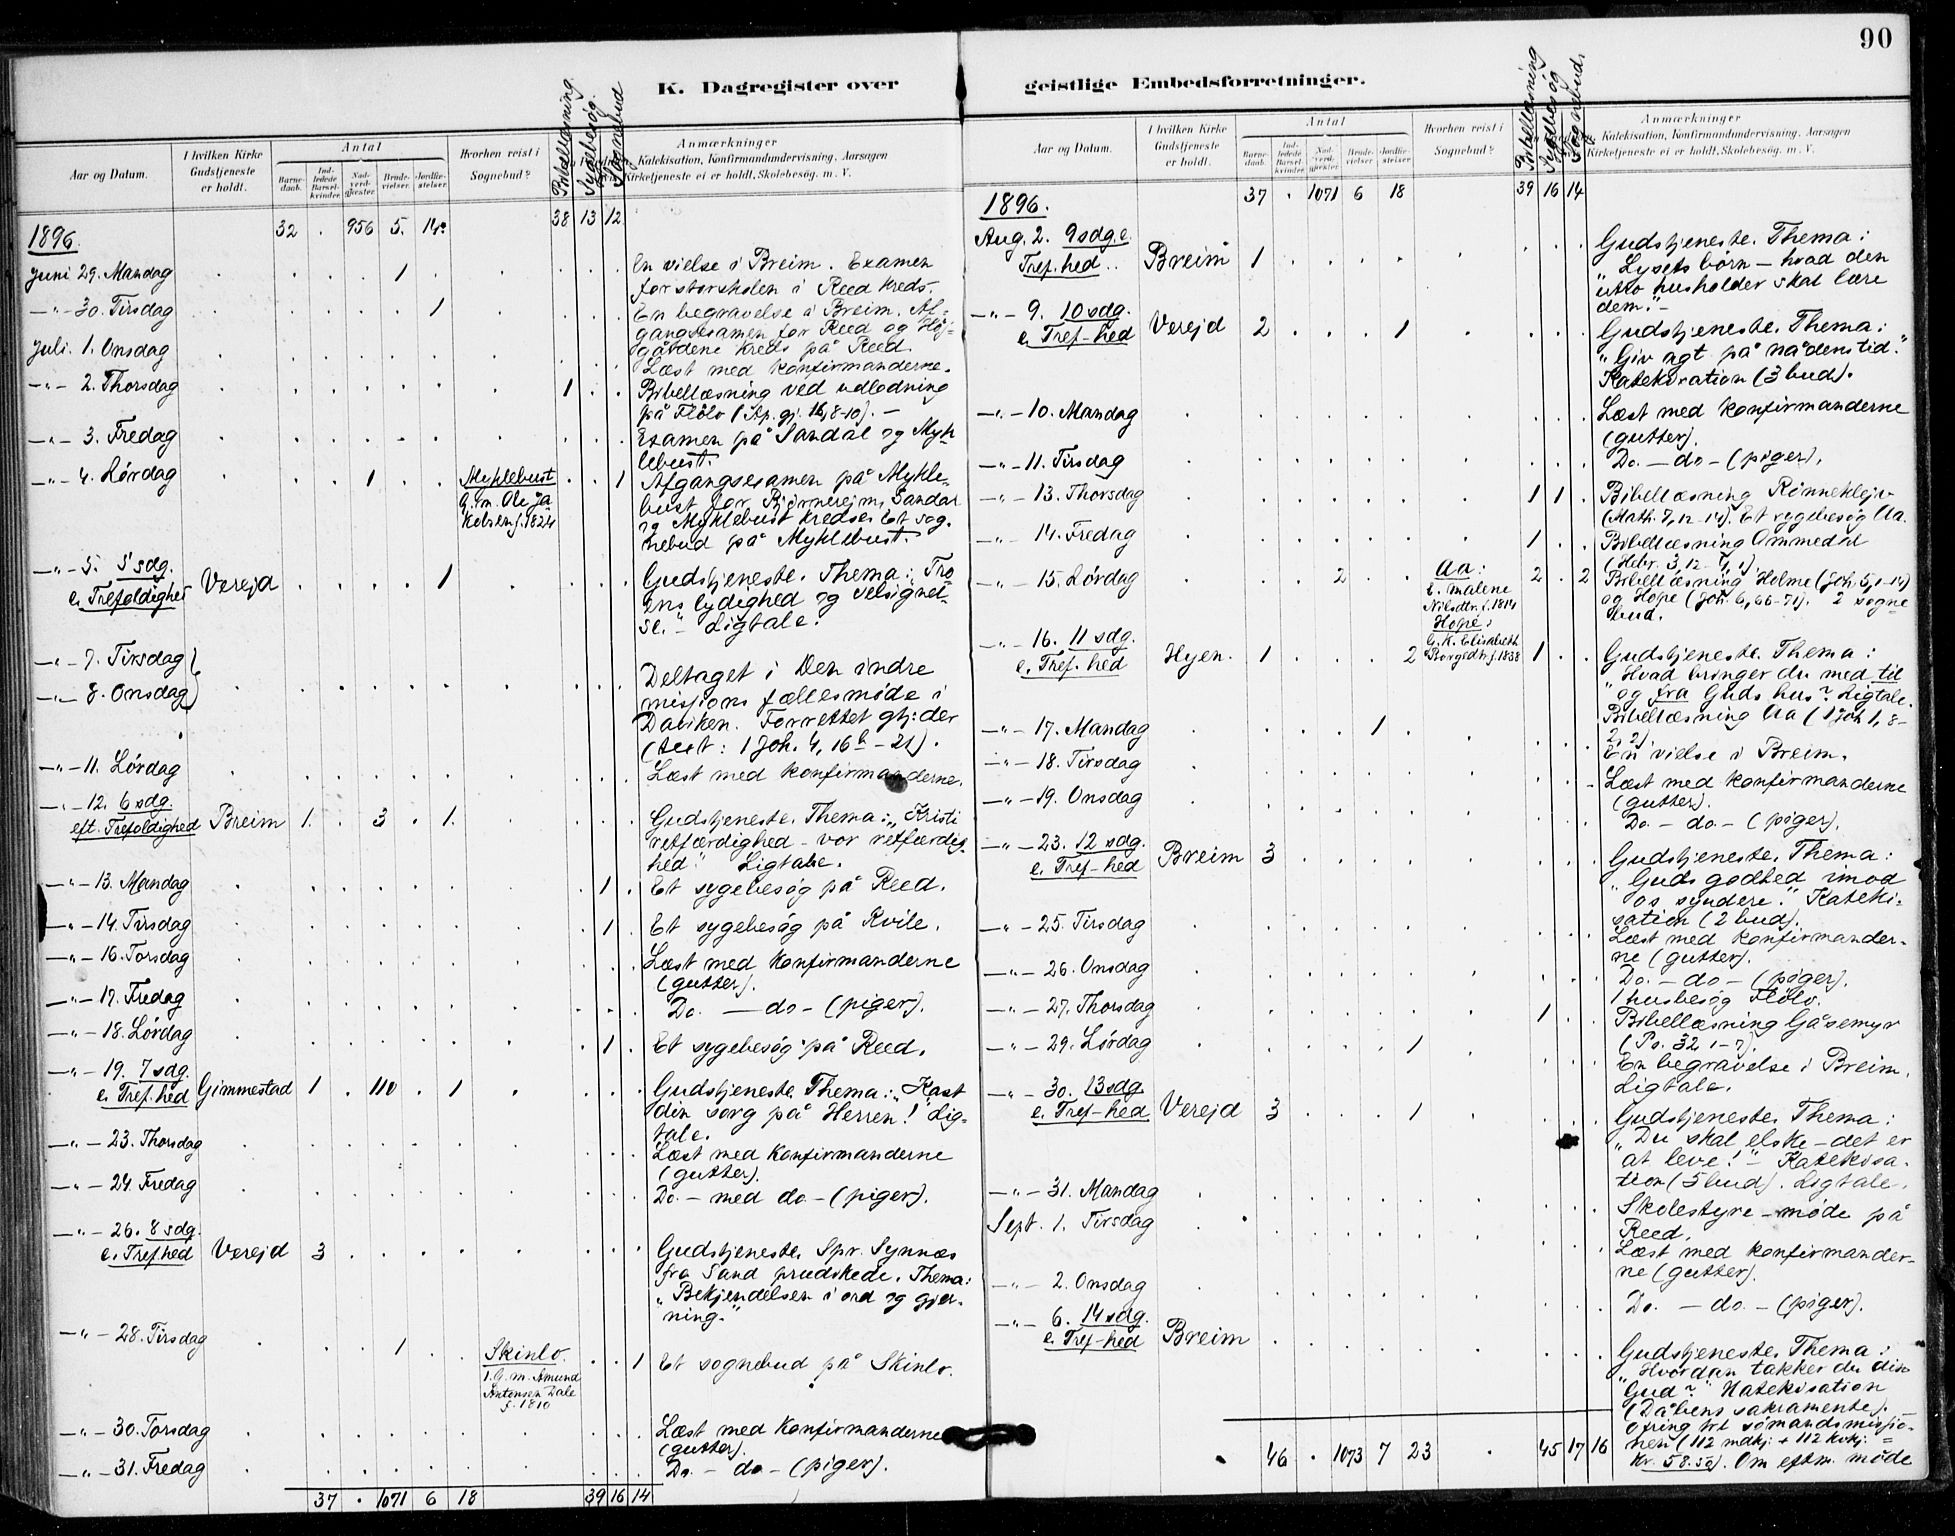 90
K. Dagregister over
geistlige Embedsforretninger.
Aar og Datum.
I hvilken Kirke
Gudstjeneste
er holdt.
Antal
Barne-
daab.
Ind-
ledede
Barsel-
kvinder.
Nad-
verd-
gjester.
Brude-
vielser.
Jordfæ-
stelser.
Hvorhen reist i
Sognebud?
Bibellæsning
Sygebesøg
Sognebud
Anmærkninger
Katekisation, Konfirmandundervisning, Aarsagen
Kirketjeneste ei er holdt, Skolebesøg. m. V.
1896. 32 . 956 5. 14. 38 13 12
Juni 29. Mandag 1 En vielse i Breim. Examen
for storskolen i Reed kreds.
-"- 30. Tirsdag 1 En begravelse i Breim. Af-
gangsexamen for Reed og Høj-
gårdene kreds på Reed.
Juli. 1. Onsdag Læst med konfirmanderne.
-"- 2. Thorsdag 1 Bibellæsning ved udlodning
på Flølo (Ap. gj. 16, 8-10). -
-"- 3. Fredag Examen på Sandal og Mykl
lebust.
-"- 4. Lørdag 1 Myklebust
G. m. Ole Ja
kobsen f. 1824
1 Afgangsexamen på Mykle-
bust for Bjørnerejm, Sandal
og Myklebust kredse. Et sog-
nebud på Myklebust.
-"- 5. 5 sdg.
e. Trefoldighet Verejd 1 Gudstjeneste. Thema: "Tro-
ens lydighed og velsignel-
se." Ligtale.
-"- 7. Tirsdag
-"- 8. Onsdag Deltaget i Den indre
missions fællesmøde i
Daviken. Forrettet gtj: der
(text: 1 Joh. 4, 16b-21).
-"- 11. Lørdag Læst med konfirmanderne.
-"- 12. 6 sdg.
eft. Trefoldighed Breim 1. 3 1. Gudstjeneste. Thema: "Kristi
retfærdighed - vor retfærdig-
hed." Ligtale.
-"- 13. Mandag 1 Et sygebesøg på Reed.
-"- 14. Tirsdag 1 Et sygebesøg på Kvile.
-"- 16. Torsdag Læst med konfirmanderne
(gutter).
-"- 17. Fredag Do. - do - (piger).
-"- 18. Lørdag 1 Et sygebesøg på Reed.
-"- 19. 7 sdg.
e. Tref.hed Gimmestad 1 110 1 Gudstjeneste. Thema: "Kast
din sorg på Herren! Lig-
tale.
-"- 23. Thorsdag Læst med konfirmanderne
(gutter).
-"- 24. Fredag Do. - med do - (piger).
-"- 26. 8 sdg.
e. Tref.hed Verejd 3 Gudstjeneste. Spr. Synnæs
fra Sand prædikede. Thema:
"Bekjendelsen i ord og gjer-
ning."
-"- 28. Tirsdag 1 Skinlo.
1. G. m. Amund
Antonsen Dale
f. 1810
1 Et sognebud på Skinlo.
-"- 30. Torsdag Læst med konfirmanderne
(gutter).
-"- 31. Fredag Do. - do - (piger).
37 . 1071 6 18 39 16 14
Aar og Datum.
I hvilken Kirke
Gudstjeneste
er holdt.
Antal
Barne-
daab.
Ind-
ledede
Barsel-
kvinder.
Nad-
verd-
gjester.
Brude-
vielser.
Jordfæ-
stelser.
Hvorhen reist i
Sognebud?
Bibellæsning
Sygebesøg
Sognebud.
Anmærkninger
Katekisation, Konfirmandundervisning, Aarsagen
Kirketjeneste ei er holdt, Skolebesøg. m. V.
1896. 37 . 1071 6 18 39 16 14
Aug. 2. 9 sdg. e.
Tref.hed.. Breim 1 Gudstjeneste. Thema:
"Lysets børn - hvad den
utro husholder skal lære
dem." -
-"- 9. 10 sdg.
e. Tref-hed Verejd 2 1 Gudstjeneste. Thema:
"Giv agt på nådens tid."
Katekisation (3 bud).
-"- 10. Mandag Læst med konfirmanderne
(gutter).
-"- 11. Tirsdag Do. - do - (piger).
-"- 13. Thorsdag 1 1 Bibellæsning Rønnekleiv
(Math. 7, 12-14). Et sygebesøg Aa.
-"- 14. Fredag 1 Bibellæsning Ommedal
(Hebr. 3, 12- 4, 1).
-"- 15. Lørdag 2 Aa:
E. Malene
Nilsdtr. f. 1814
Hope:
G. K. Elisabeth
Børgedtr f. 1838
2 . 2 Bibellæsning Holme (Joh. 5, 1-14)
og Hope (Joh. 6, 66-71). 2 sogne-
bud.
-"- 16. 11 sdg.
e. Tref-hed Hyen. 1 2 1 Gudstjeneste. Thema:
"Hvad bringer du med til
og fra Guds hus?" Ligtale.
Bibellæsning Aa (1 Joh 1, 8-
2, 2).
-"- 17. Mandag 1 En vielse i Breim.
-"- 18. Tirsdag Læst med konfirmanderne
(gutter).
-"- 19. Onsdag Do. - do - (piger).
-"- 23. 12 sdg.
e. Tref-hed Breim 3 Gudstjeneste. Thema:
"Guds godhed imod
os syndere." Kateki-
sation (2 bud).
-"- 25. Tirsdag Læst med konfirmander-
ne (gutter).
-"- 26. Onsdag Do. - do - (piger).
1 husbesøg Flølo.
-"- 27. Thorsdag 1 Bibellæsning Gåsemyr
(Ps. 32 1-7).
-"- 29. Lørdag 1 En begravelse i Breim.
Ligtale.
-"- 30. 13 sdg.
e. Tref-hed Verejd 3 1 Gudstjeneste. Thema:
"Du skal elske - det er
at leve!" - Katekisa-
tion (5 bud). Ligtale.
-"- 31. Mandag Skolestyre-møde på
Reed.
Sept. 1. Tirsdag Læst med konfirmander-
ne (gutter).
-"- 2. Onsdag Do. - do - (piger).
-"- 6. 14 sdg.
e. Tref-hed Breim Gudstjeneste. Thema:
"Hvordan takker du din
Gud?" Katekisation
(Dåbens sakramente).
Ofring til sømandsmissio-
nen (112 mdkj. + 112 kvkj. =
kr. 58.50). Om eftm. møde
46 . 1073 7 23 45 17 16